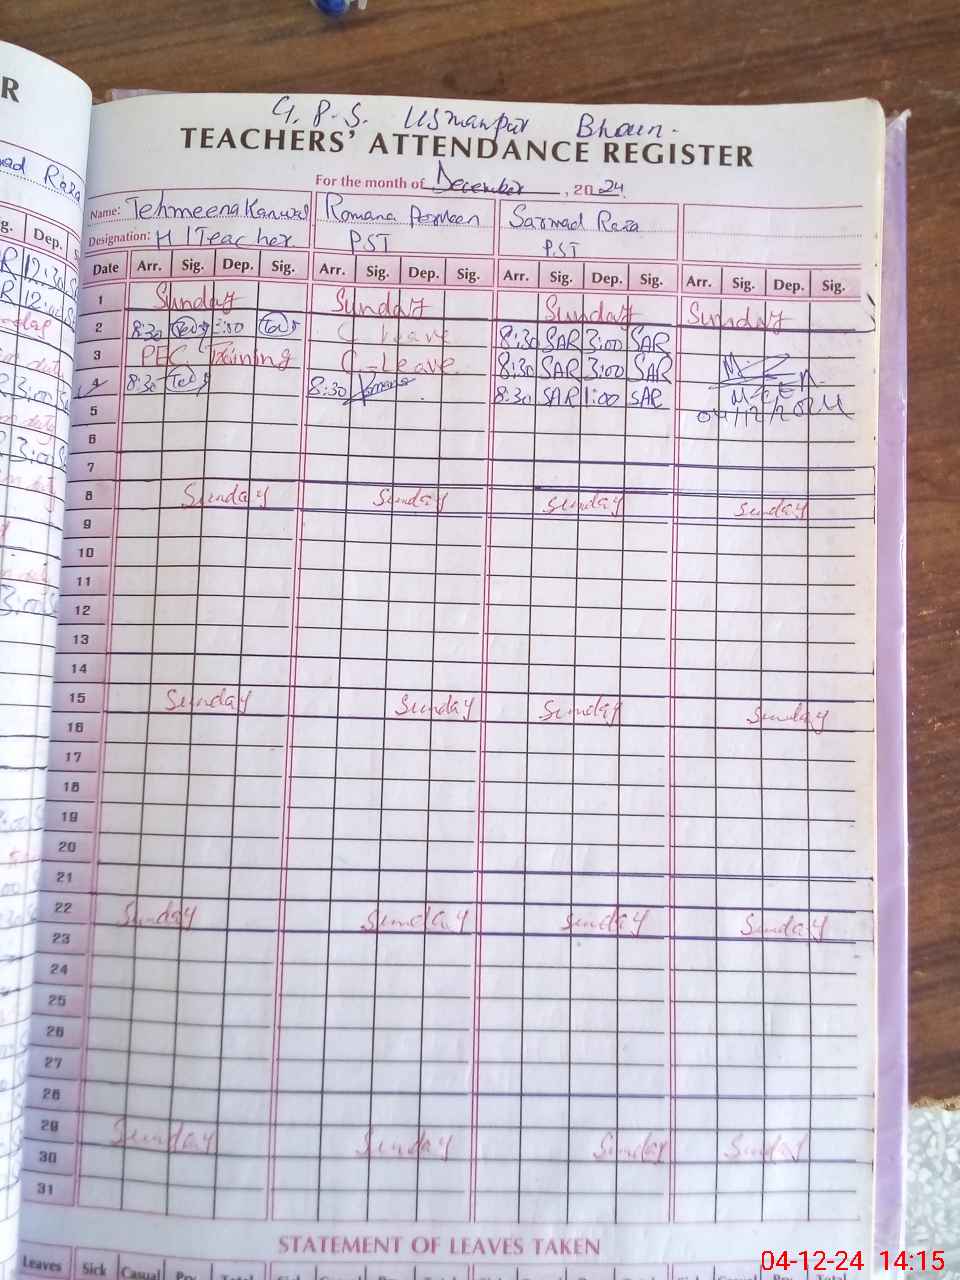 G. P. S. Usmanpur Bhoun.
TEACHERS' ATTENDANCE REGISTER
For the month of December, 2024
Name: Tehmeena Kanwal Romana Perveen Sarmad Raza
Designation: H/Teacher PST PST
Date Arr. Sig. Dep. Sig. Arr. Sig. Dep. Sig. Arr. Sig. Dep. Sig. Arr. Sig. Dep. Sig.
1 Sunday Sunday Sunday Sunday
2 8:30 3:00 C leave 8:30 SAR 3:00 SAR
3 PEC Training C-Leave 8:30 SAR 3:00 SAR
4 8:30 8:30 8:30 SAR 1:00 SAR
5 04/12/2024
6
7
8 Sunday Sunday Sunday Sunday
9
10
11
12
13
14
15 Sunday Sunday Sunday Sunday
16
17
18
19
20
21
22 Sunday Sunday Sunday Sunday
23
24
25
26
27
28
29 Sunday Sunday Sunday Sunday
30
31
STATEMENT OF LEAVES TAKEN
Leaves Sick Casual Total
04-12-24 14:15